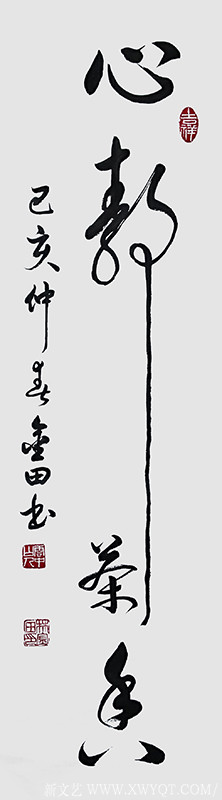 心静茶香
己亥仲春金田书
吉祥
新文艺 WWW.XWYQT.COM